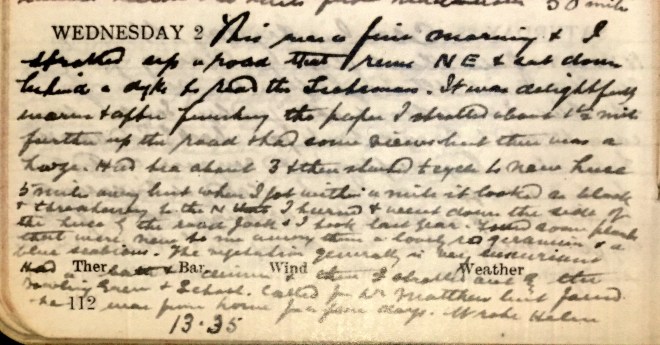 50 miles
WEDNESDAY 2 This was a fine morning & I
strolled up a road that runs NE & sat down
behind a dyke to read the Scotsman. It was delightfully
warm & after finishing the paper I strolled about 1½ mile
further up the road & had some views but there was a
haze. Had tea about 3 & then started to cycle to new Luce
5 miles away but when I got within a mile it looked so black
& threatening to the N that I turned & went down the side of
the Luce by the road Jack & I took last year. Found some plants
that were new to me among them a lovely red geranium & a
blue. The vegetation generally is very luxurious
Ther. Bar. Wind Weather
Had a & dinner & then I strolled out to the
Bowling Green & School. Called for Dr Matthew but found
he was from home for a few days. Wrote Helen
112
13.35